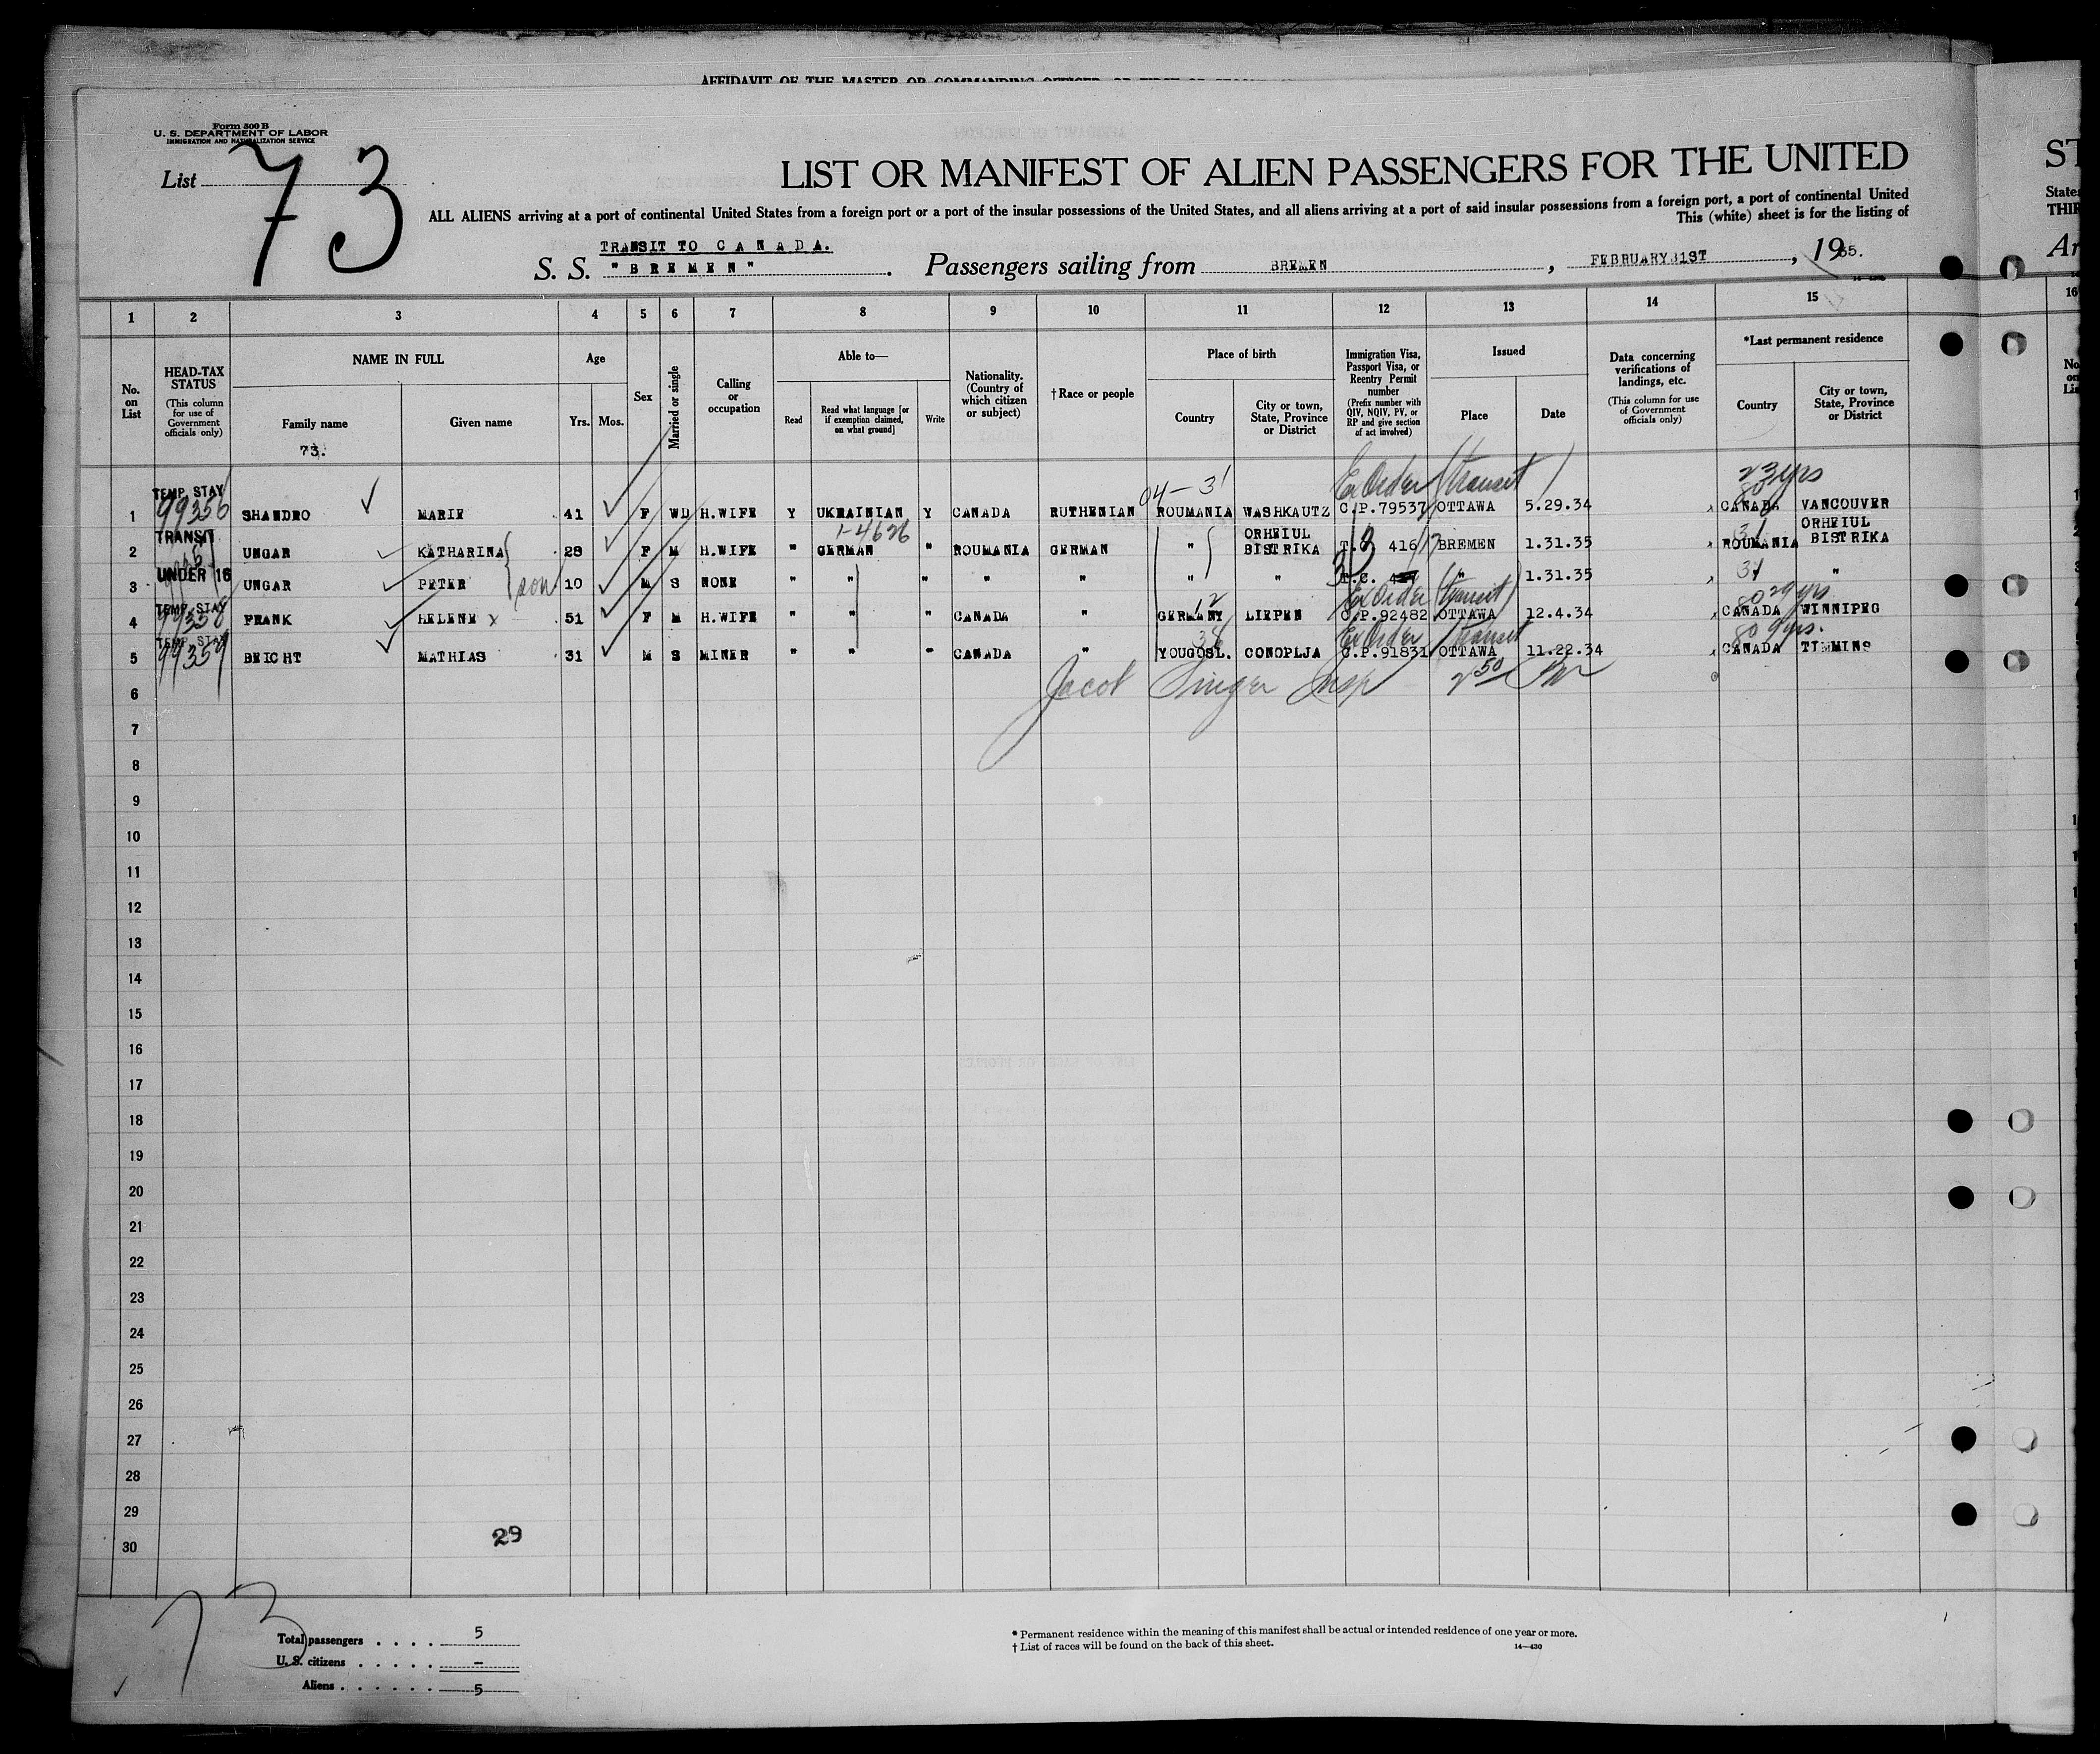 AFFIDAVIT OF THE MASTER OR COMMANDING OFFICER, OR FIRST OR
Form 500 B
U. S. DEPARTMENT OF LABOR
IMMIGRATION AND NATURALIZATION SERVICE
List 73
LIST OR MANIFEST OF ALIEN PASSENGERS FOR THE UNITED
ST
ALL ALIENS arriving at a port of continental United States from a foreign port or a port of the insular possessions of the United States, and all aliens arriving at a port of said insular possessions from a foreign port, a port of continental United
State
This (white) sheet is for the listing of
THIR
TRANSIT TO CANADA.
S. S. "BREMEN". Passengers sailing from BREMEN, FEBRUARY 1ST, 1935.
Ar
1 2 3 4 5 6 7 8 9 10 11 12 13 14 15 16
No. on List
HEAD-TAX STATUS
(This column for use of Government officials only)
NAME IN FULL
Family name
73.
Given name
Age
Yrs. Mos.
Sex
Married or single
Calling or occupation
Able to—
Read
Read what language [or if exemption claimed, on what ground]
Write
Nationality. (Country of which citizen or subject)
† Race or people
Place of birth
Country
City or town, State, Province or District
Immigration Visa, Passport Visa, or Reentry Permit number
(Prefix number with QIV, NQIV, PV, or RP and give section of act involved)
Issued
Place
Date
Data concerning verifications of landings, etc.
(This column for use of Government officials only)
*Last permanent residence
Country
City or town, State, Province or District
No on Lis
04-31 Ex Order (transit) 23 yrs
1 TEMP. STAY 99356 SHANDRO MARIE 41 F WD H.WIFE Y UKRAINIAN Y CANADA RUTHENIAN ROUMANIA WASHKAUTZ C.P.79537 OTTAWA 5.29.34 CANADA VANCOUVER
1-4626
2 TRANSIT UNGAR KATHARINA 28 F M H.WIFE " GERMAN " ROUMANIA GERMAN " ORHEIUL BISTRIKA T.C. 416 BREMEN 1.31.35 ROUMANIA ORHEIUL BISTRIKA
3 UNDER 16 UNGAR PETER son 10 M S NONE " " " " " " " T.C. " 1.31.35 31 "
12 Ex Order (transit) 80 29 yrs
4 TEMP. STAY 99358 FRANK HELENE x 51 F M H.WIFE " " " CANADA " GERMANY LIEPEN C.P.92482 OTTAWA 12.4.34 CANADA WINNIPEG
36 Ex Order (transit 80 9 yrs.
5 TEMP. STAY 99359 BEICHT MATHIAS 31 M S MINER " " " CANADA " YOUGOSL. CONOPLJA C.P.91831 OTTAWA 11.22.34 CANADA TIMMINS
6 Jacob Singer Insp 2 50 PM
7
8
9
10
11
12
13
14
15
16
17
18
19
20
21
22
23
24
25
26
27
28
29
29
30
73
Total passengers . . . . 5
U. S. citizens . . . . . –
Aliens . . . . . . 5
* Permanent residence within the meaning of this manifest shall be actual or intended residence of one year or more.
† List of races will be found on the back of this sheet.
14—430